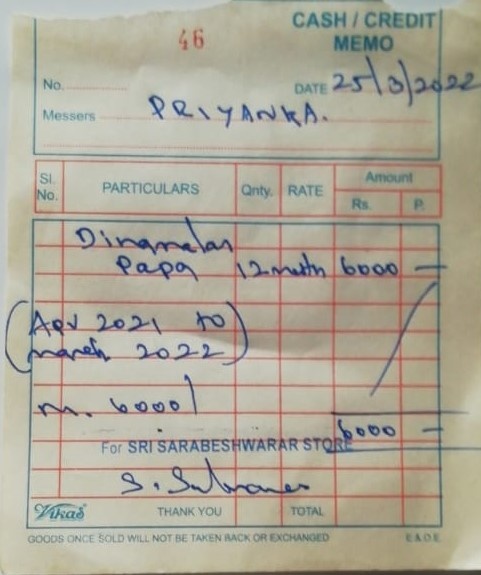 CASH / CREDIT
46
MEMO
No.
DATE 25/3/2022
Messers PRIYANKA.
Sl. No. PARTICULARS Qnty. RATE Amount
Rs. P.
Dinamalar
Papa 12 month 6000 —
(Apr 2021 to
march 2022)
m. 6000/
6000 —
For SRI SARABESHWARAR STORE
Vikas THANK YOU TOTAL
GOODS ONCE SOLD WILL NOT BE TAKEN BACK OR EXCHANGED E.&O.E.